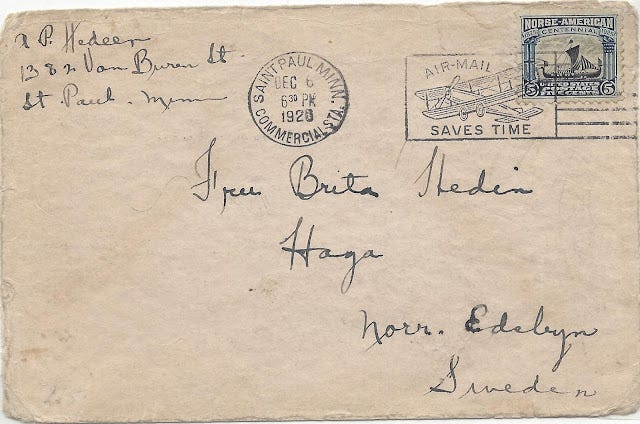 P. Hedeen
1382 Van Buren St.
St. Paul. Minn
SAINT PAUL, MINN.
DEC 6
6 30 PM
COMMERCIAL STA.
AIR-MAIL
SAVES TIME
NORSE-AMERICAN
CENTENNIAL
5 5
Fru Brita Hedin
Haga
Norr. Edsbyn
Sweden